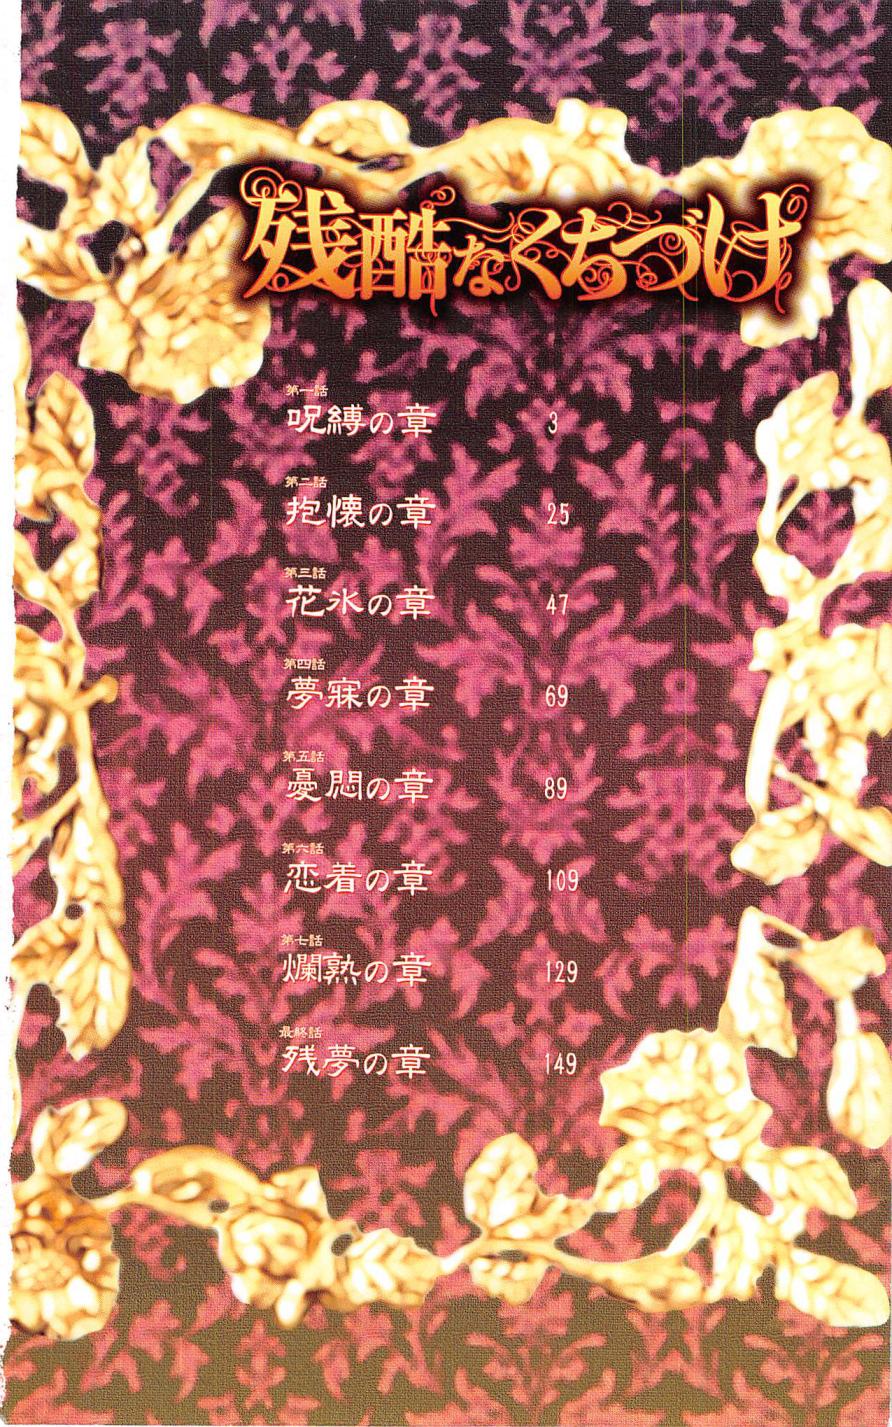 残酷なくちづけ
第一話
呪縛の章 3
第二話
抱懐の章 25
第三話
花氷の章 47
第四話
夢寐の章 69
第五話
憂悶の章 89
第六話
恋着の章 109
第七話
爛熟の章 129
最終話
残夢の章 149